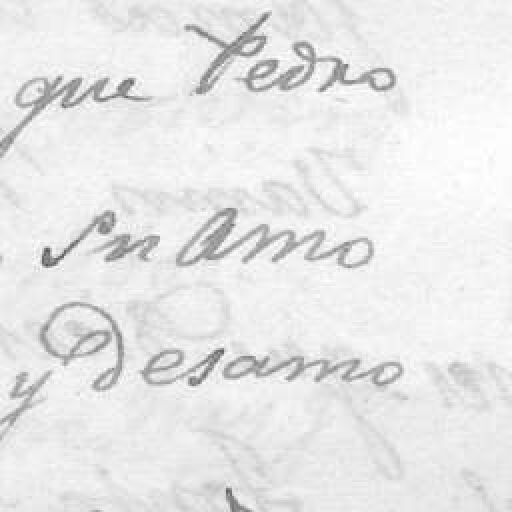 que Pedro
Su Amo
y desamo